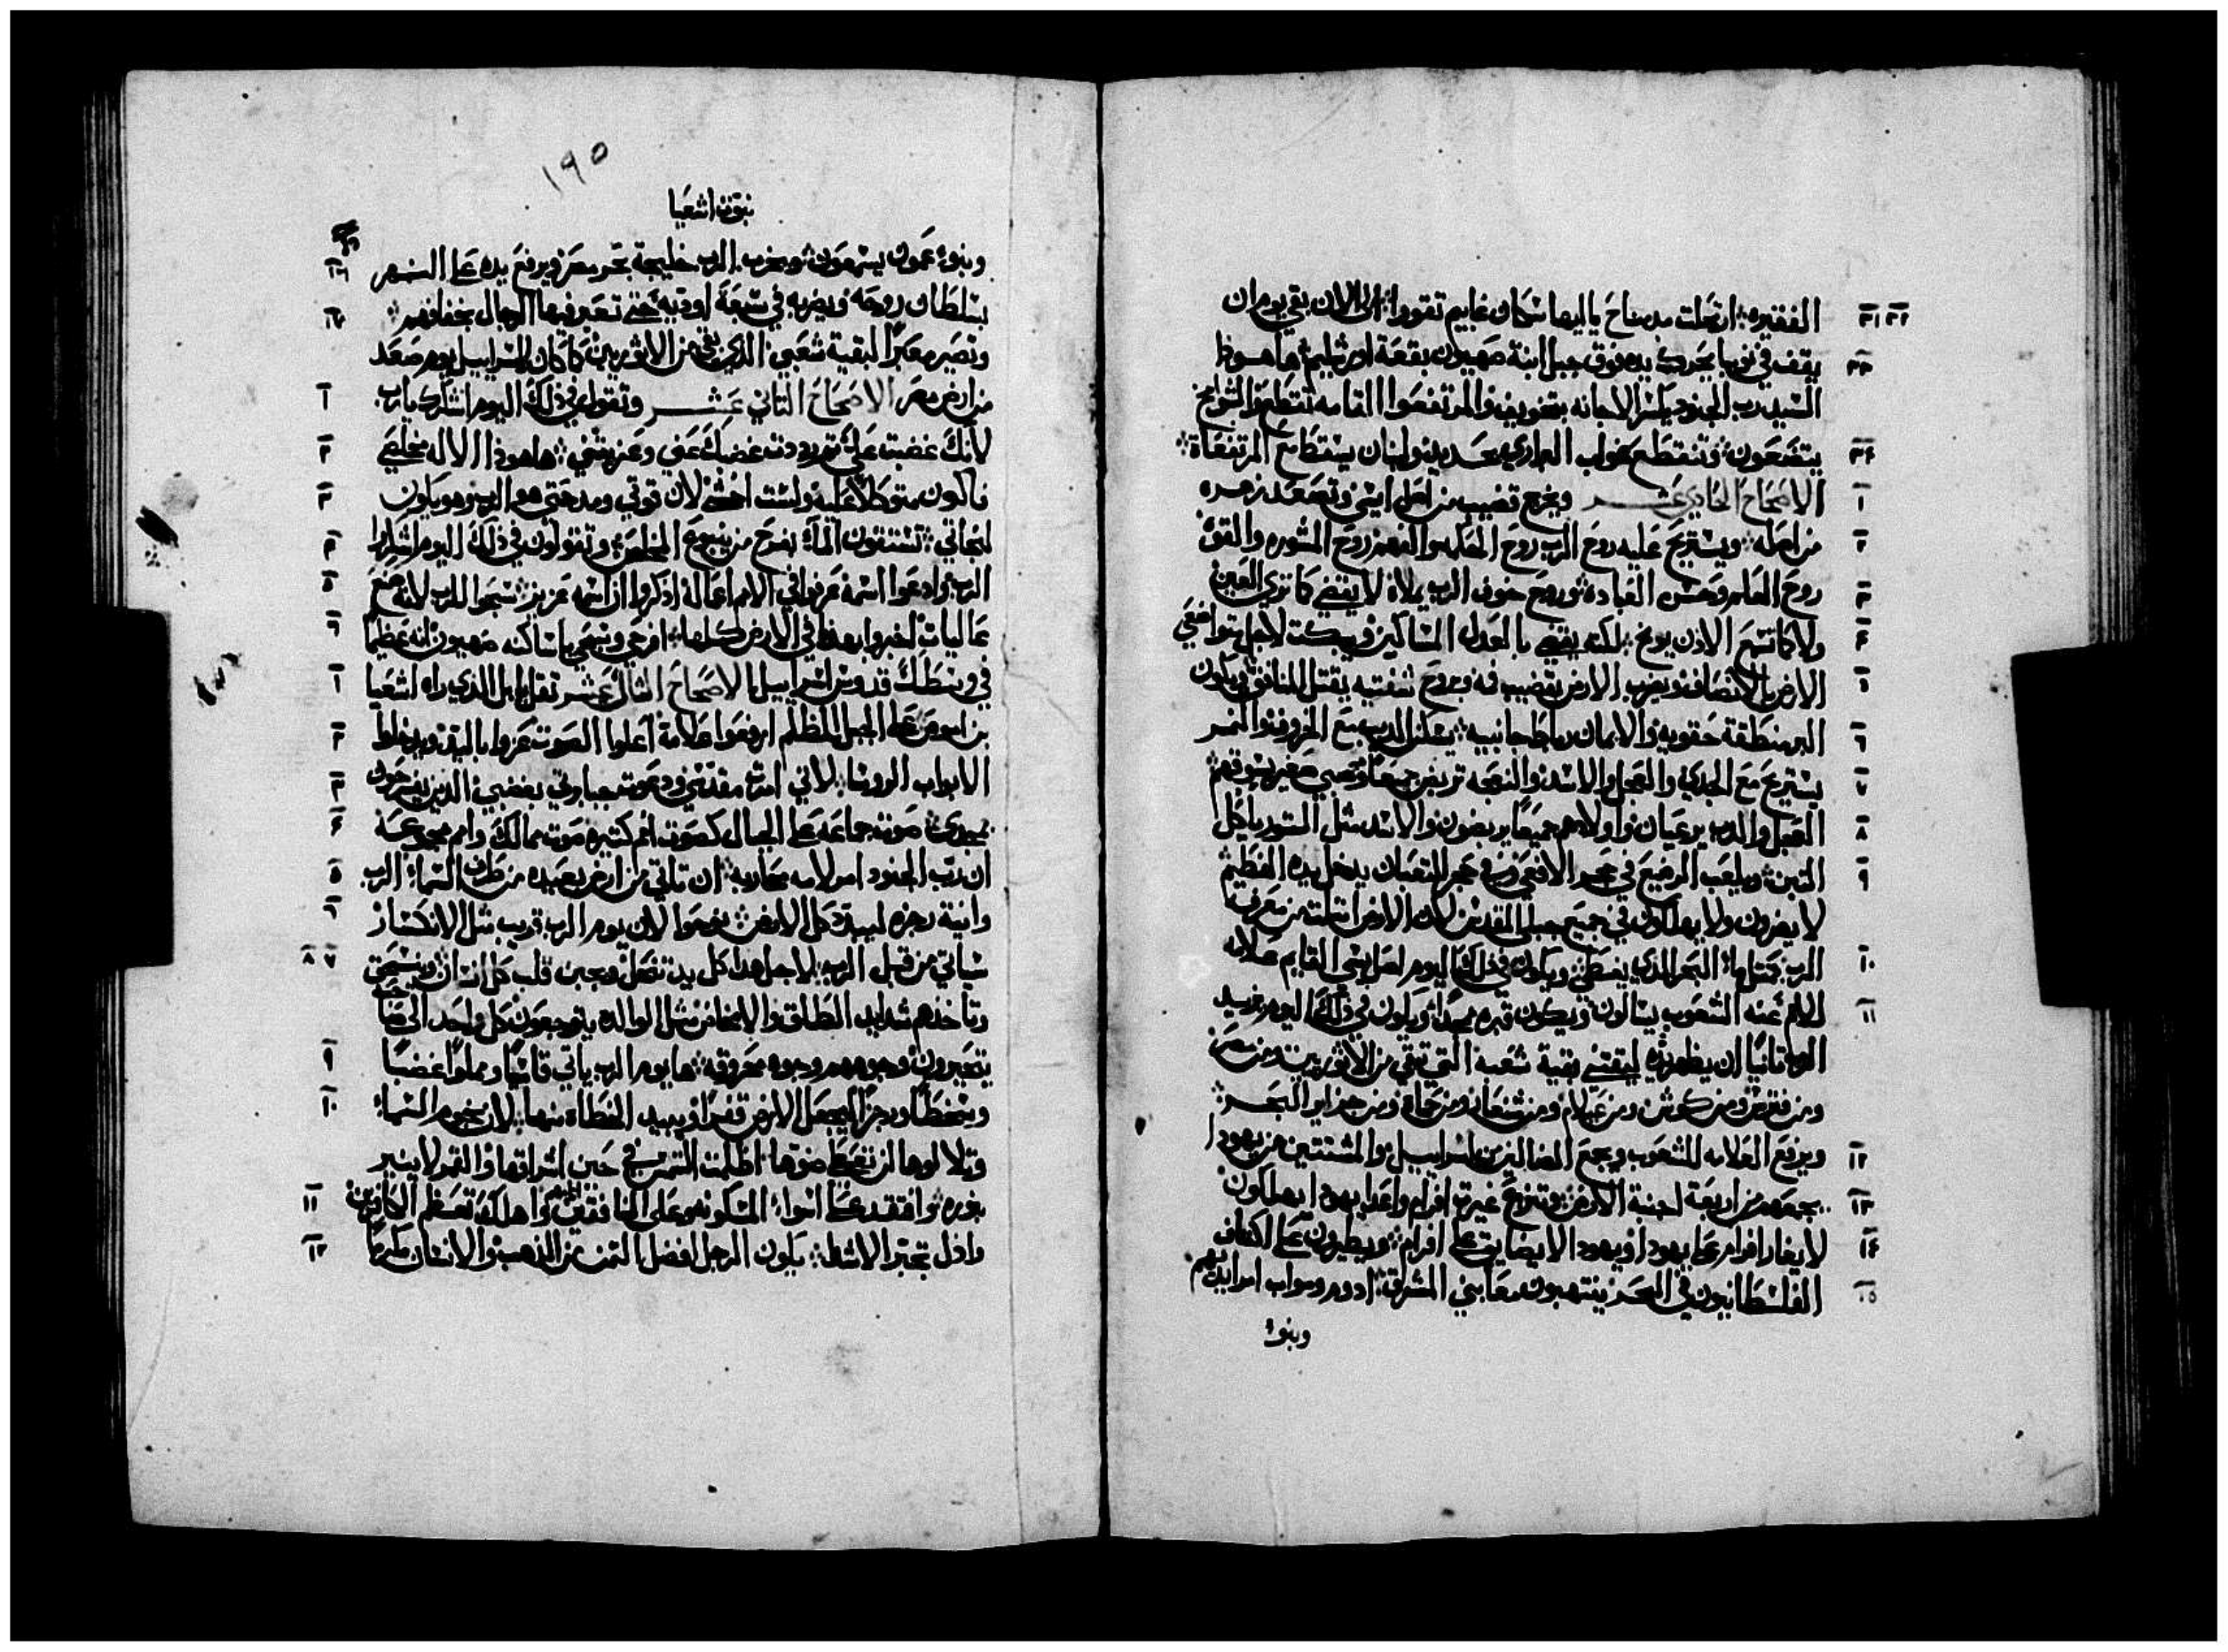 الفقيره: ارتحلت مدمناح ياايها سكان غابيم تقووا: الى الان بقي يوم ان
يقف في نوبا يحرك يده فوق جبل ابنة صهيون بقعة اورشليم: ها هوذا
السيد رب الجنود يكسر الاجانه بتخويف والمرتفعوا القامه تنقطع والشوامخ
يتضعون: وتنقطع غوات الحديد ولبنان يسقط مع المرتفعاة:
الاصحاح الحادي عشر ويخرج قضيب من اصل ايسى وتصعد زهره
من اصله: ويستريح عليه روح الرب روح الحكمه والفهم روح المشوره والقوة
روح العلم وحسن العباده: وروح خوف الرب يملاه لا يقضي كما ترى العين
ولا كما تسمع الاذن يوبخ: لكنه يقضي بالعدل المساكين ويبكت لاجل متواضعي
الارض بالانصاف ويضرب الارض بقضيب فمه وبروح شفتيه يقتل المنافق: ويكون
البر منطقة حقويه والايمان رباط جانبيه: يسكن الديب مع الخروف والنمر
يستريح مع الجدي والعجل والاسد والنعجه تربض جميعا وصبي صغير يسوقهم:
العجل والدب يرعيان واولادهم جميعا يربضون والاسد مثل الثور ياكل
التبن: ويلعب الرضيع في جحر الافعى وفي جحر الثعبان يدخل يده الفطيم:
لا يضرون ولا يهلكون في جميع جبلي المقدس لان الارض امتلت من معرفة
الرب كمثل ما البحر الذي يغطى: ويكون في ذلك اليوم اصل يسى القايم علامه
للامم عنه الشعوب يسالون ويكون قبره مجدا: ويكون في ذلك اليوم يزيد
الرب ثانيا ان يظهر يده ليقتني بقية شعبه التي تبقى من الاثوريين ومن مصر
ومن فتروس ومن كوش ومن عيلام ومن شنعار ومن حماة ومن جزاير البحر:
ويرفع العلامه للشعوب ويجمع الضالين من اسراييل والمشتتين من يهودا
يجمعهم من اربعة اجنة الارض: وتنزع غيرة افرام واعدا يهودا يهلكون
لا يغار افرام على يهودا ويهودا لا يضايق على افرام: ويطيرون على اكتاف
الفلسطانيون في البحر ينتهبون معا بني المشرق: ادوم ومواب امر ايديهم
وبنو
١٩٥
نبوة اشعيا
وبنو عمون يسمعون: ويخرب الرب خليجة بحر مصر ويرفع يده على النهر
بسلطان روحه ويضربه في سبعة اوديه حتى تعبر فيها الرجال بخفافهم:
وتصير معبرا لبقية شعبي الذي بقى من الاثوريين كما كان لاسراييل يوم صعد
من ارض مصر الاصحاح الثاني عشر وتقول في ذلك اليوم اشكرك يارب
لانك غضبت علي ثم رددت غضبك عني وعزيتني: ها هوذا الاله مخلصي
فاكون متوكلا عليه ولست اخشى لان قوتي ومدحتي هو الرب وهو يكون
لنجاتي: تستقون الماء بفرح من ينبوع المخلص: وتقولون في ذلك اليوم اشكروا
الرب وادعوا اسمه عرفوا في الامم اعماله اذكروا ان اسمه عزيز: سبحوا للرب لانه صنع
عاليات اخبروا بهذا في الارض كلها: افرحي وسبحي ياساكنه صهيون انه عظيم
في وسطك قدوس اسراييل: الاصحاح الثالث عشر ثقل بابل الذي راه اشعيا
بن اموص على الجبل المظلم ارفعوا علامة اعلوا الصوت عزوا باليد: ويدخلوا
الابواب الروسا: لاني امرت مقدسي ودعوت جبابرتي بغضبي الذين يفرحون
بمجدي: صوت جماعه على الجبال كصوت امم كثيره صوت ممالك وامم مجموعه
ان رب الجنود امر لامه محاربه: ان تاتي من ارض بعيده من طرف السماء الرب
وانية رجزه ليبدد كل الارض: نوحوا لان يوم الرب قريب مثل الانكسار
سياتي من قبل الرب: لاجل هذا كل يد تضعف ويجبن قلب كل انسان: وينسحق
وتاخذهم شدايد الطلق والامخاض مثل الوالده يتوجعون كل واحد الى صاحبه
يتحيرون: وجوههم وجوه محروقه: ها يوم الرب ياتي قاسيا ومملوا غضبا
وسخطا ورجزا ليجعل الارض قفرا ويبيد الخطاه منها: لان نجوم السماء
وتلالوها لن تعطي ضوها اظلمت الشمس في حين اشراقها والقمر لا ينير
بنوره: وافتقد على اسواء المسكونه وعلى المنافقين اثمهم واهلك تعظم الكافرين
واذل تجبر الاشدا: يكون الرجل افضل الثمن من الذهب والانسان يكرم